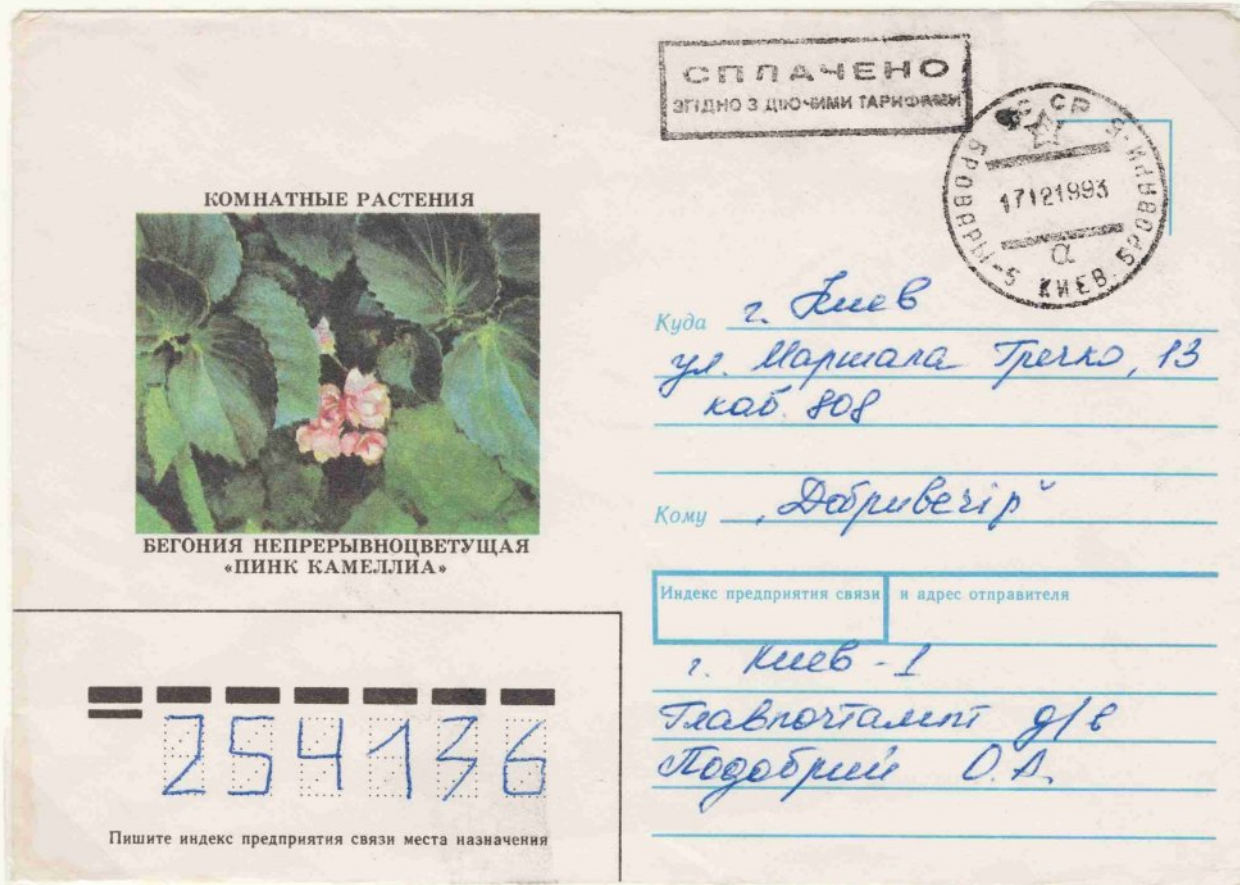 СПЛАЧЕНО
ЗГІДНО З ДІЮЧИМИ ТАРИФАМИ
СССР
БРОВАРИ-5
17121993
а
БРОВАРЫ-5 КИЕВ.
КОМНАТНЫЕ РАСТЕНИЯ
БЕГОНИЯ НЕПРЕРЫВНОЦВЕТУЩАЯ
«ПИНК КАМЕЛЛИА»
Куда г. Киев
ул. Маршала Гречко, 13
каб. 808
Кому „Добривечір“
Индекс предприятия связи и адрес отправителя
г. Киев - 1
Главпочтампт д/в
Подобрий О.А.
254136
Пишите индекс предприятия связи места назначения